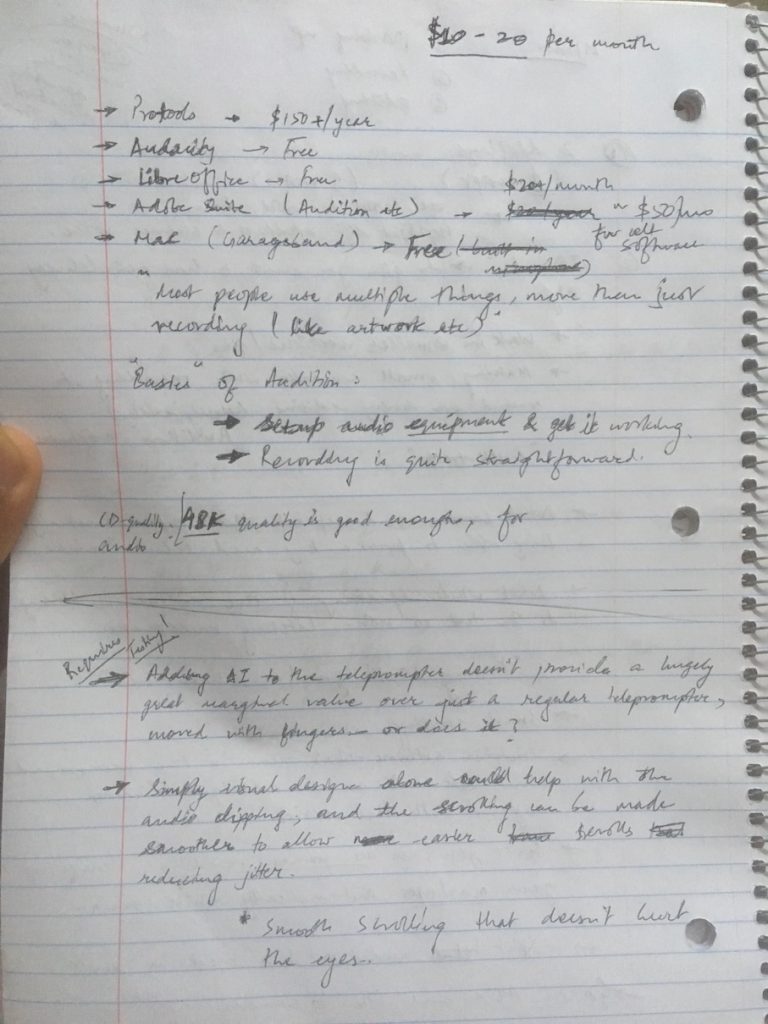 $10 - 20 per month
→ Protools → $150+/year
→ Audacity → Free
→ Libre office → Free
$20+/month
→ Adobe Suite (Audition etc) → $20+/year or $50/mo
for all software
→ Mac (Garageband) → Free (built in
microphone)
"Most people use multiple things, more then just
recording (like artwork etc)"
"Basics" of Audition:
→ Setup audio equipment & get it working.
→ Recording is quite straightforward.
CD-quality 48K quality is good enough, for
audio
Requires Testing!
→ Adding AI to the teleprompter doesn't provide a hugely
great marginal value over just a regular teleprompter,
moved with fingers - or does it?
→ Simply visual design alone could help with the
audio clipping, and the scrolling can be made
smoother to allow easier scrolls
reducing jitter.
* Smooth scrolling that doesn't hurt
the eyes..